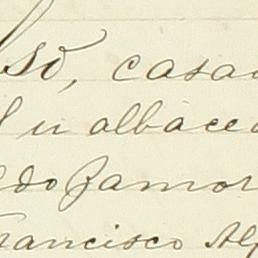 so, casa
albacea
do Zamor
rancisco Alf